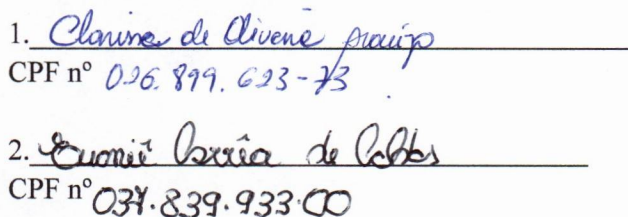 1. Clarissa de Oliveira Araújo
CPF nº 026.899.623-73
2. Corrêa de
CPF nº 037.839.933.00